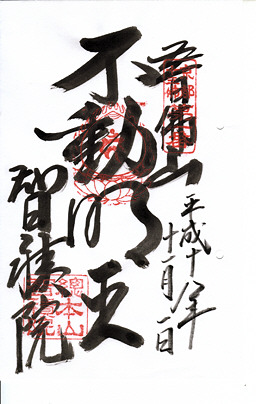 五百佛山
平成十八年
十一月一日
不動明王
智積院
總本山
智積院